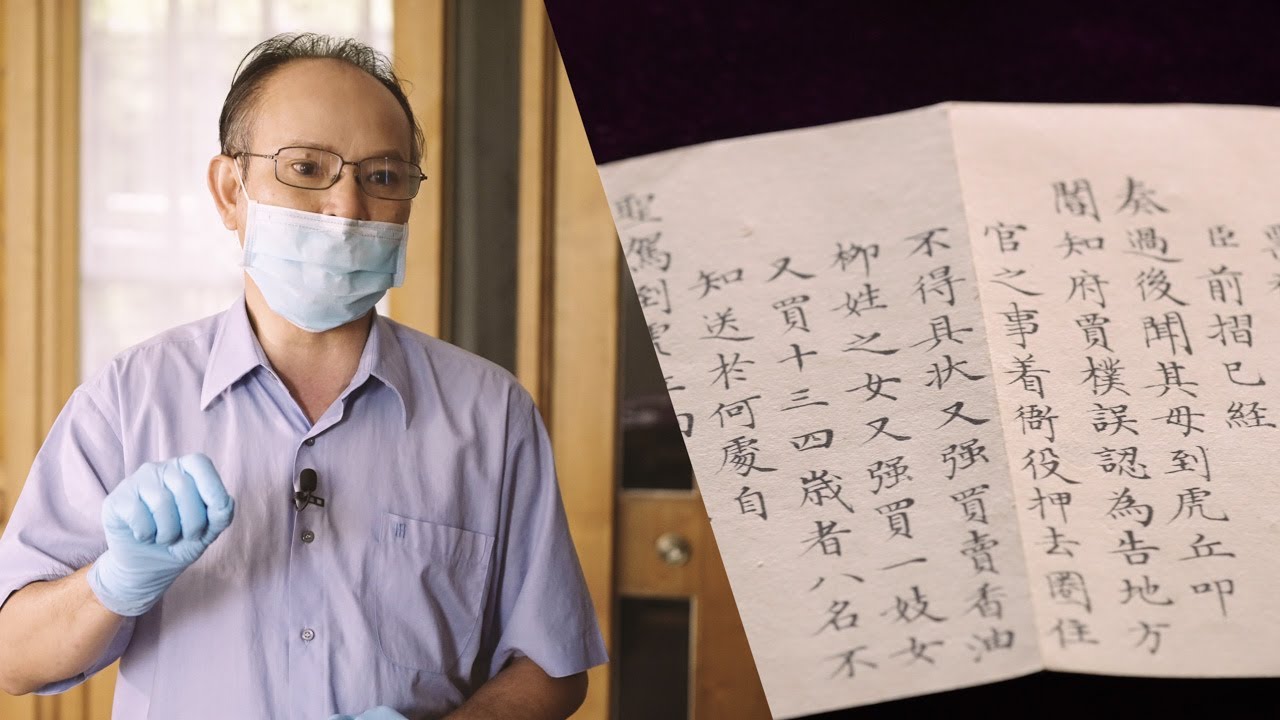 臣前摺已経
奏過後聞其母到虎丘叩
閽知府賈樸誤認為告地方
官之事着衙役押去圈住
不得具状又强買賣香油
柳姓之女又强買一妓女
又買十三四歲者八名不
知送於何處自
聖駕到